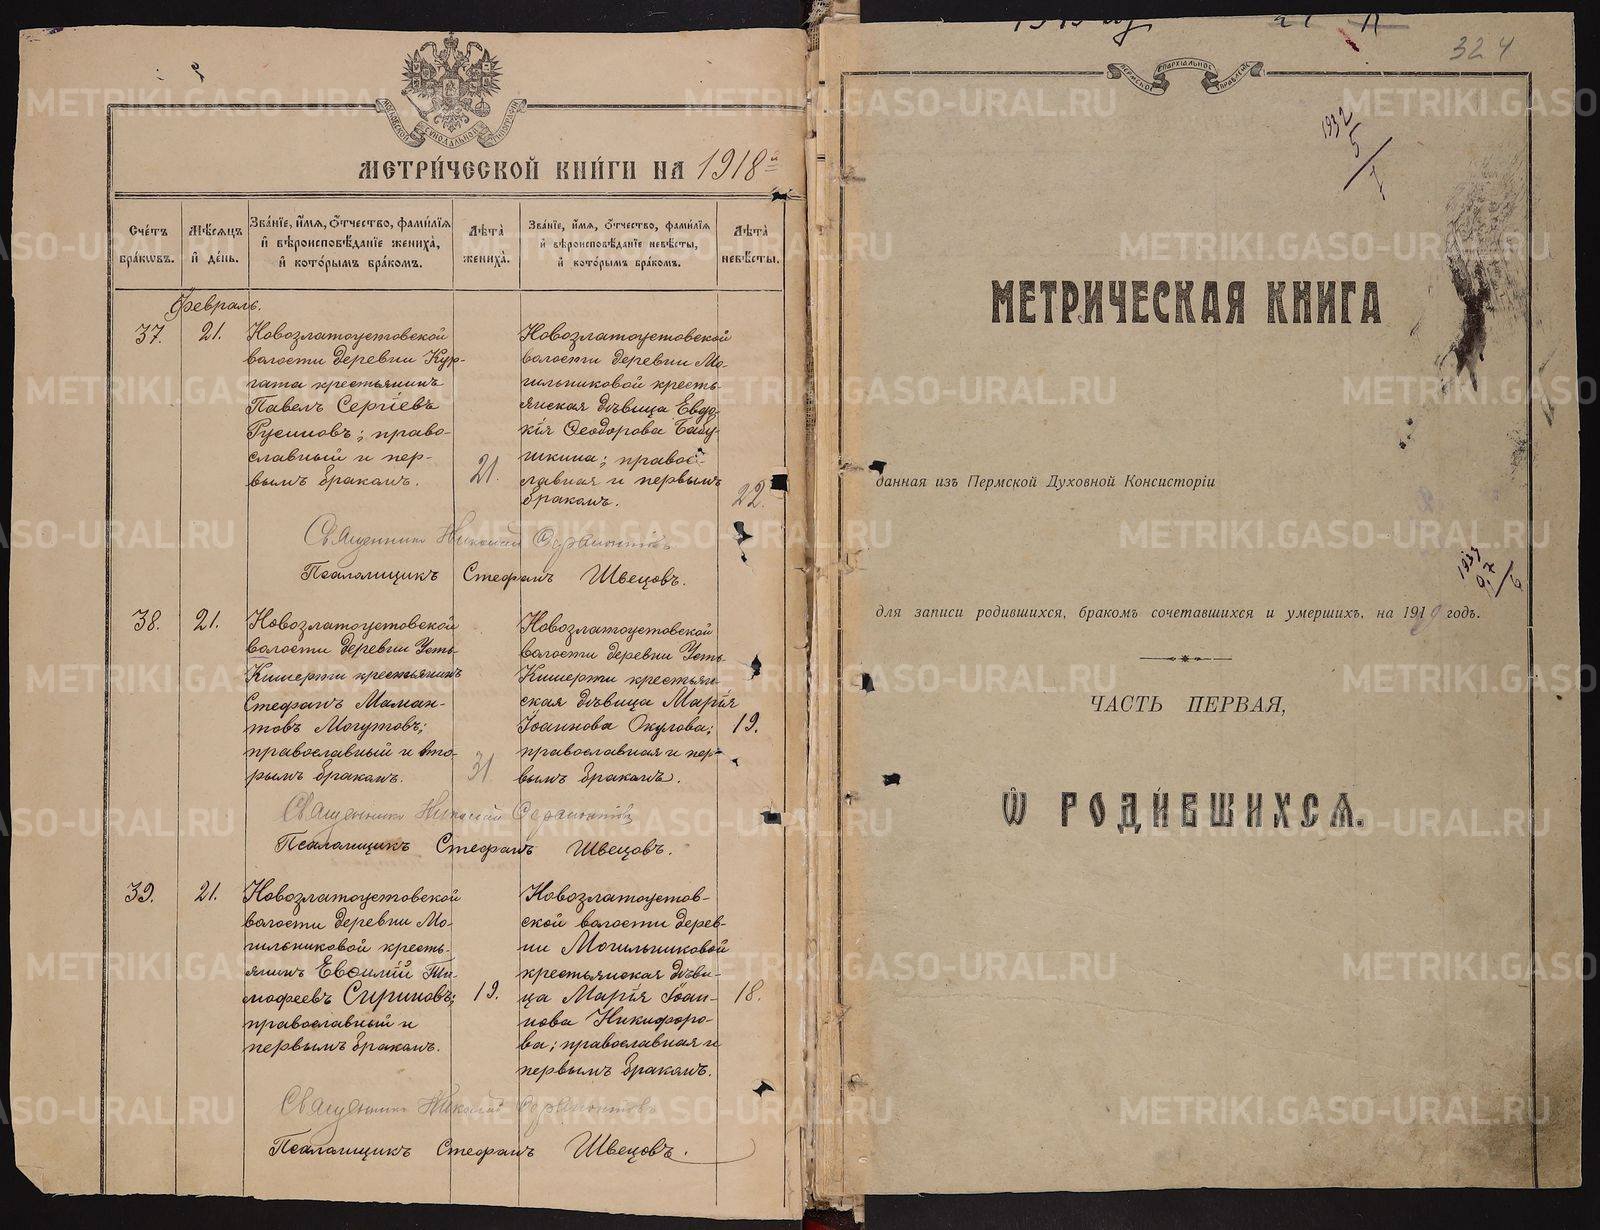 МЕТРИ́ЧЕСКОЙ КНИ́ГИ НА 1918й
Сче́тъ бра́кωвъ.
Мѣ́сяцъ и҆ де́нь.
Зва́нїе, и҆́мѧ, ѻ҆́тчество, фами́лїѧ и҆ вѣроисповѣ́данїе жениха̀, и҆ кото́рымъ бра́комъ.
Лѣта̀ жениха̀.
Зва́нїе, и҆́мѧ, ѻ҆́тчество, фами́лїѧ и҆ вѣроисповѣ́данїе невѣ́сты, и҆ кото́рымъ бра́комъ.
Лѣта̀ невѣ́сты.
Февраль.
37.
21.
Новозлатоустовской
волости деревни Кур-
гата крестьянинъ
Павелъ Сергіевъ
Русиновъ; право-
славный и пер-
вымъ бракомъ.
21.
Новозлатоустовской
волости деревни Мо-
гильниковой кресть-
янская дѣвица Евдо-
кія Ѳеодорова Бабу-
шкина; право-
славная и первымъ
бракомъ.
22.
Священникъ Николай
Псаломщикъ Стефанъ Швецовъ.
38.
21.
Новозлатоустовской
волости деревни Усть-
Кишерти крестьянинъ
Стефанъ Маман-
товъ Могутовъ;
православный и вто-
рымъ бракомъ.
31
Новозлатоустовской
волости деревни Усть-
Кишерти крестьян-
ская дѣвица Марія
Іоаннова Окулова;
православная и пер-
вымъ бракомъ.
19.
Священникъ Николай
Псаломщикъ Стефанъ Швецовъ.
39.
21.
Новозлатоустовской
волости деревни Мо-
гильниковой кресть-
янинъ Евѳимій Ти-
мофеевъ Сириновъ;
православный и
первымъ бракомъ.
19.
Новозлатоустов-
ской волости дерев-
ни Могильниковой
крестьянская дѣви-
ца Марія Іоан-
нова Никифоро-
ва; православная и
первымъ бракомъ.
18.
Священникъ Николай
Псаломщикъ Стефанъ Швецовъ.
324
1932
5
ПЕРМСКОЕ ЕПАРХІАЛЬНОЕ
МЕТРИЧЕСКАЯ КНИГА
данная изъ Пермской Духовной Консисторіи
для записи родившихся, бракомъ сочетавшихся и умершихъ, на 1919 годъ.
ЧАСТЬ ПЕРВАЯ,
Ѽ РОДИ́ВШИХСѦ.
METRIKI.GASO-URAL.RU